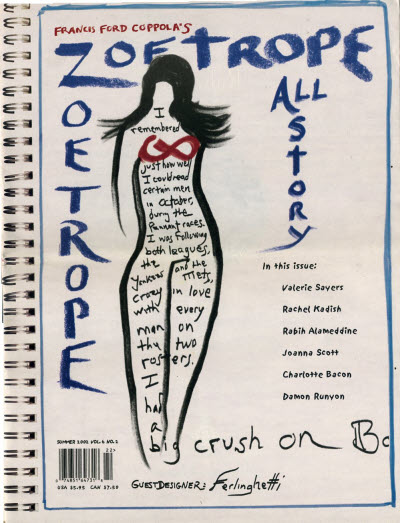 FRANCIS FORD COPPOLA'S
ZOETROPE
ZOETROPE
ALL
STORY
I
remembered
just how well
I could read
certain men
in October,
during the
Pennant races.
I was following
both leagues,
the Yankees and the Mets,
crazy in love
with every
man on
the two
rosters.
I
had
a
big crush on Bo
In this issue:
Valerie Sayers
Rachel Kadish
Rabih Alameddine
Joanna Scott
Charlotte Bacon
Damon Runyon
SUMMER 2002 VOL. 6 NO. 2
USA $5.95 CAN $7.50
GUEST DESIGNER: Ferlinghetti